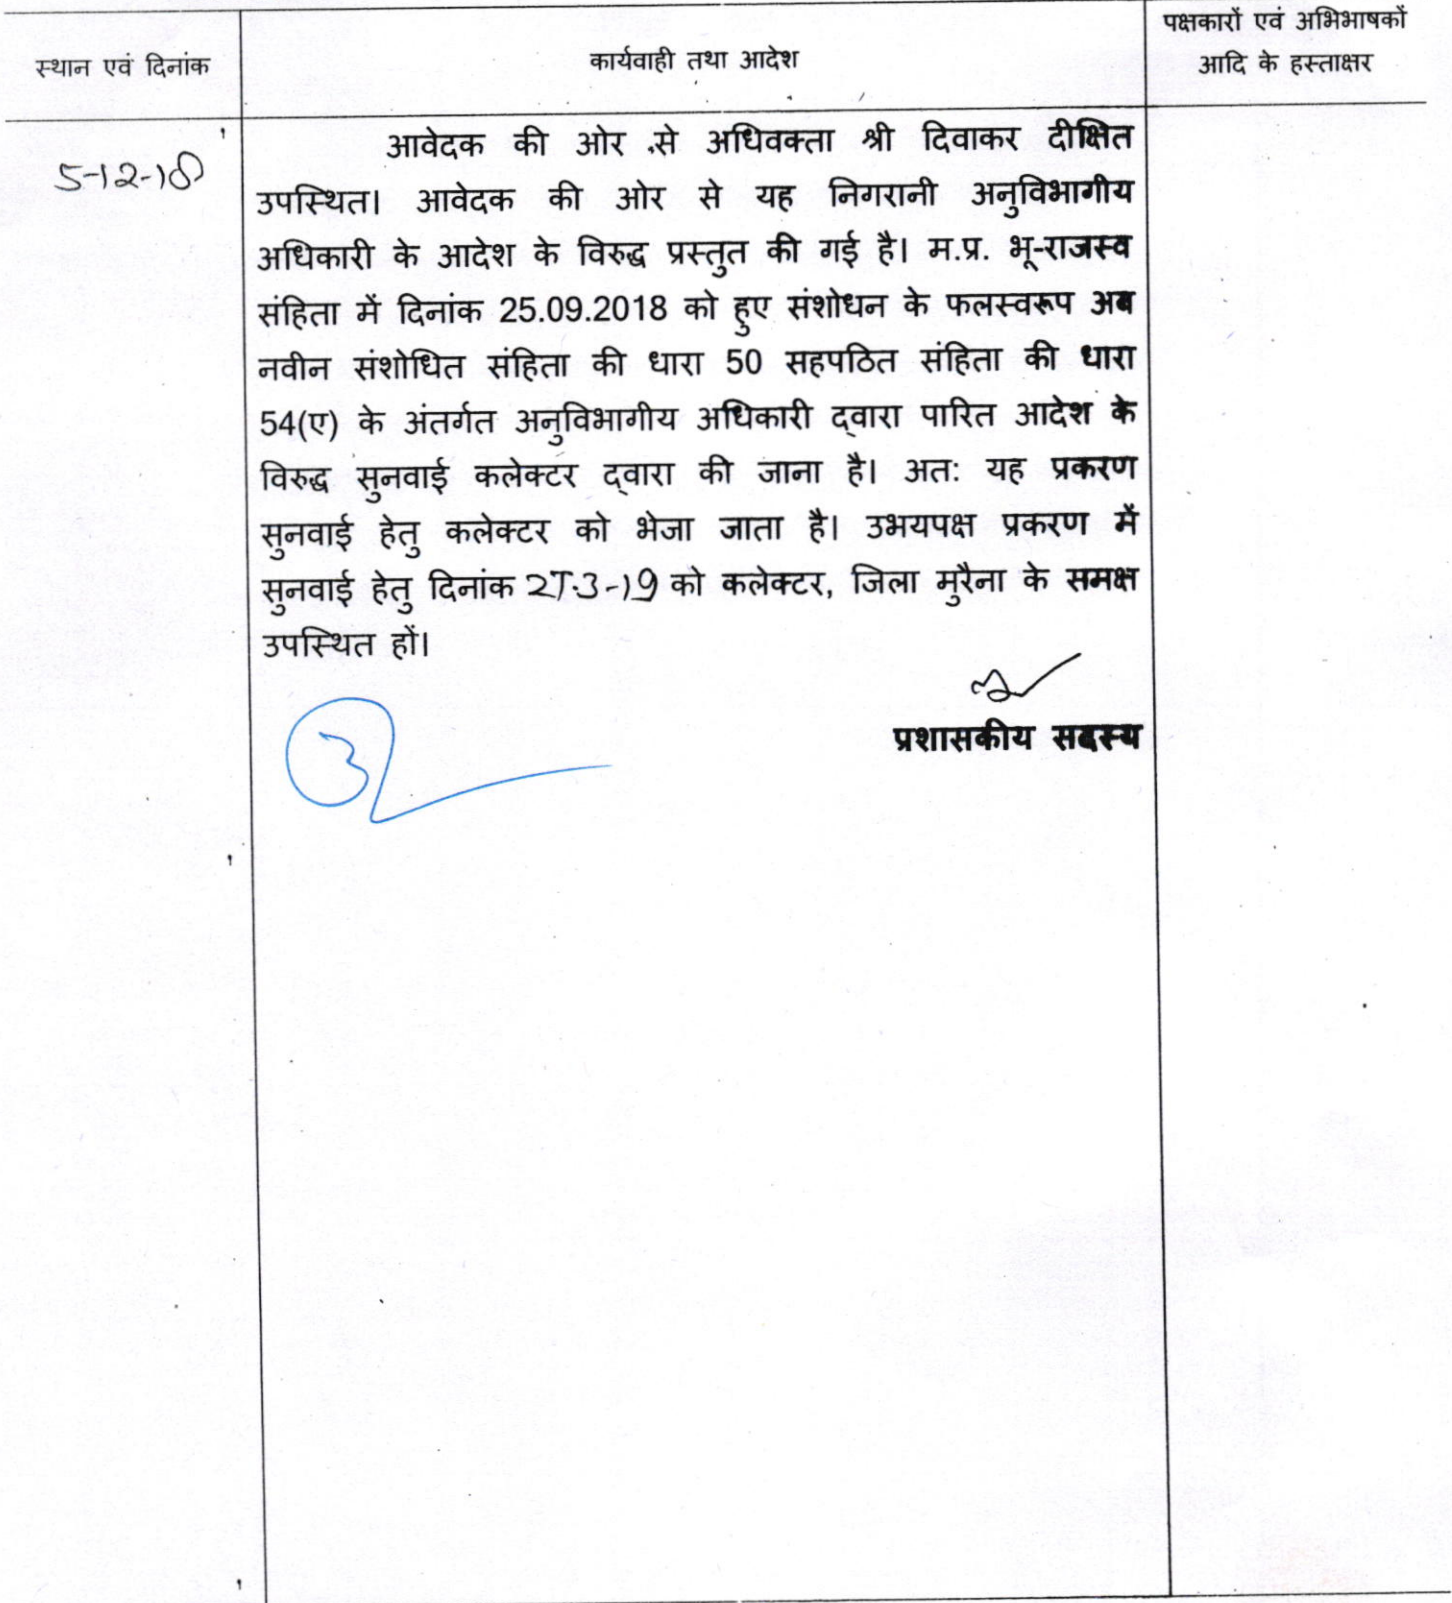 स्थान एवं दिनांक
कार्यवाही तथा आदेश
पक्षकारों एवं अभिभाषकों
आदि के हस्ताक्षर
5-12-18
आवेदक की ओर से अधिवक्ता श्री दिवाकर दीक्षित
उपस्थित। आवेदक की ओर से यह निगरानी अनुविभागीय
अधिकारी के आदेश के विरुद्ध प्रस्तुत की गई है। म.प्र. भू-राजस्व
संहिता में दिनांक 25.09.2018 को हुए संशोधन के फलस्वरूप अब
नवीन संशोधित संहिता की धारा 50 सहपठित संहिता की धारा
54(ए) के अंतर्गत अनुविभागीय अधिकारी द्वारा पारित आदेश के
विरुद्ध सुनवाई कलेक्टर द्वारा की जाना है। अतः यह प्रकरण
सुनवाई हेतु कलेक्टर को भेजा जाता है। उभयपक्ष प्रकरण में
सुनवाई हेतु दिनांक 27.3-19 को कलेक्टर, जिला मुरैना के समक्ष
उपस्थित हों।
प्रशासकीय सदस्य